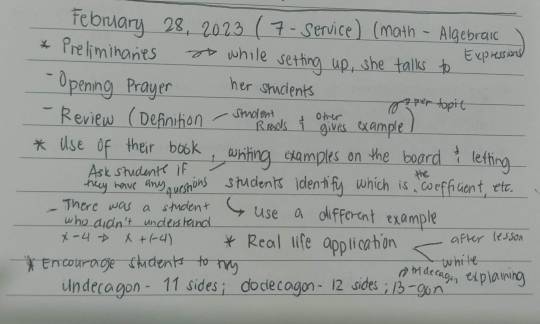 February 28, 2023 (7 - Service) (math - Algebraic Expressions)
* Preliminaries → while setting up, she talks to her students
- Opening Prayer
- Review (Definition - student Reads & other gives example) → per topic
* Use of their book, writing examples on the board & letting students identify which is the coefficient, etc.
Ask students if they have any questions
- There was a student who didn't understand
x-4 → x+(-4)
↳ use a different example
* Real life application < after lesson
while explaining
* Encourage students to try
undecagon - 11 sides; dodecagon - 12 sides; 13-gon
→ tridecagon